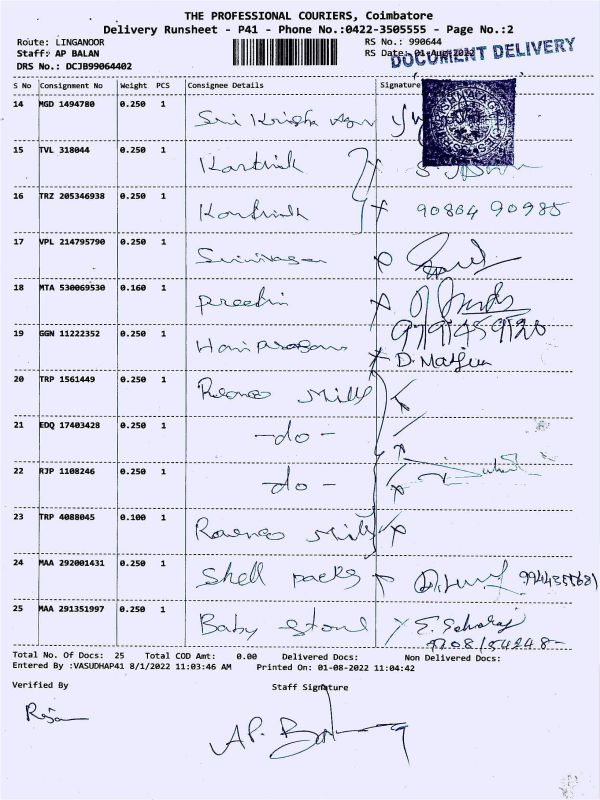 THE PROFESSIONAL COURIERS, Coimbatore
Delivery Runsheet - P41 - Phone No.:0422-3505555 - Page No.:2
Route: LINGANOOR RS No.: 990644
Staff: AP BALAN RS Date: 01-Aug-2022
DOCUMENT DELIVERY
DRS No.: DCJB99064402
S No Consignment No Weight PCS Consignee Details Signature
14 MGD 1494780 0.250 1 Sri Krishna
15 TVL 318044 0.250 1 Karthik
16 TRZ 205346938 0.250 1 Karthik 90864 90985
17 VPL 214795790 0.250 1 Srinivasan
18 MTA 530069530 0.160 1 Preethi
19 GGN 11222352 0.250 1 Hariprasana 9791459120
D. Mathu
20 TRP 1561449 0.250 1 Mills
21 EDQ 17403428 0.250 1 -do-
22 RJP 1108246 0.250 1 -do-
23 TRP 4088045 0.100 1 Mills
24 MAA 292001431 0.250 1 Shell packs
25 MAA 291351997 0.250 1 Baby Store E. Selvaraj
9708154248-
Total No. Of Docs: 25 Total COD Amt: 0.00 Delivered Docs: Non Delivered Docs:
Entered By :VASUDHAP41 8/1/2022 11:03:46 AM Printed On: 01-08-2022 11:04:42
Verified By Staff Signature
Rajan
AP. Balan